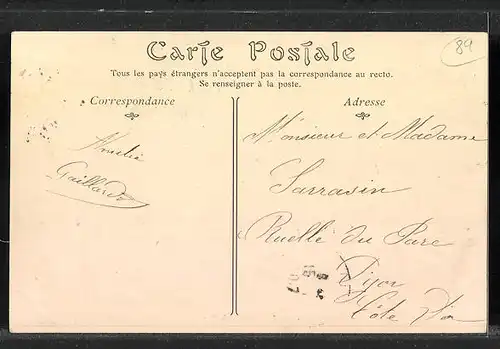 Carte Postale
Tous les pays étrangers n'acceptent pas la correspondance au recto.
Se renseigner à la poste.
89
Correspondance
Amélie
Gaillard
Adresse
Monsieur et Madame
Sarrasin
Ruelle du Parc
Dijon
Côte d'or